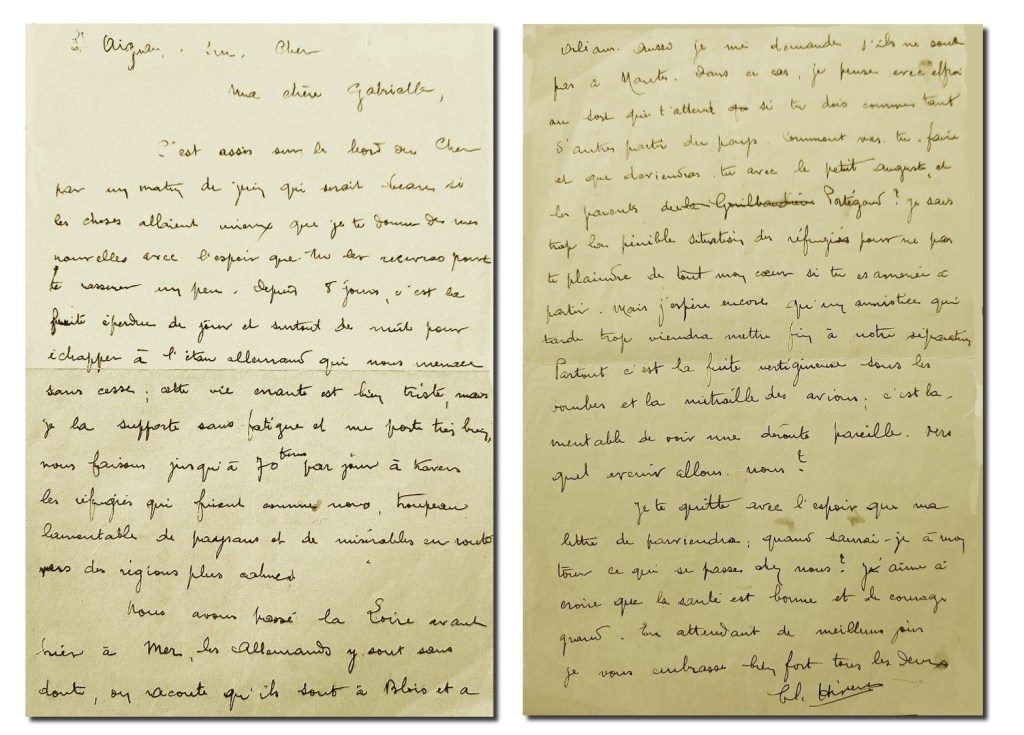 St Aignan. s/n. Cher
Ma chère Gabrielle,
C'est assis sur le bord du Cher
par un matin de juin qui serait beau si
les choses allaient mieux que je te donne de mes
nouvelles avec l'espoir que tu les recevras pour
te rassurer un peu. Depuis 8 jours, c'est la
fuite éperdue de jour et surtout de nuit pour
échapper à l'étau allemand qui nous menace
sans cesse; cette vie errante est bien triste, mais
je la supporte sans fatigue et me porte très bien,
nous faisons jusqu'à 70 par jour à travers
les réfugiés qui fuient comme nous, troupeau
lamentable de paysans et de misérables en route
vers des régions plus calmes
Nous avons passé la Loire avant
hier à Mer, les Allemands y sont sans
doute, on raconte qu'ils sont à Blois et a
Orléans. Aussi je me demande s'ils ne sont
pas à Nantes. Dans ce cas, je pense avec effroi
au sort qui t'attend si tu dois comme tant
d'autres partir du pays. Comment vas-tu faire
et que deviendras-tu avec le petit auguste, et
les parents de la Guilbaudière Portégaud? je sais
trop la pénible situation des réfugiés pour ne pas
te plaindre de tout mon cœur si tu es amenée à
partir. Mais j'espère encore qu'un armistice qui
tarde trop viendra mettre fin à notre séparation
Partout c'est la fuite vertigineuse sous les
bombes et la mitraille des avions; c'est la-
mentable de voir une déroute pareille. Vers
quel avenir allons-nous?
Je te quitte avec l'espoir que ma
lettre te parviendra; quand saurai-je à mon
tour ce qui se passe chez nous? J'aime à
croire que la santé est bonne et le courage
grand. En attendant de meilleurs jours
je vous embrasse bien fort tous les deux